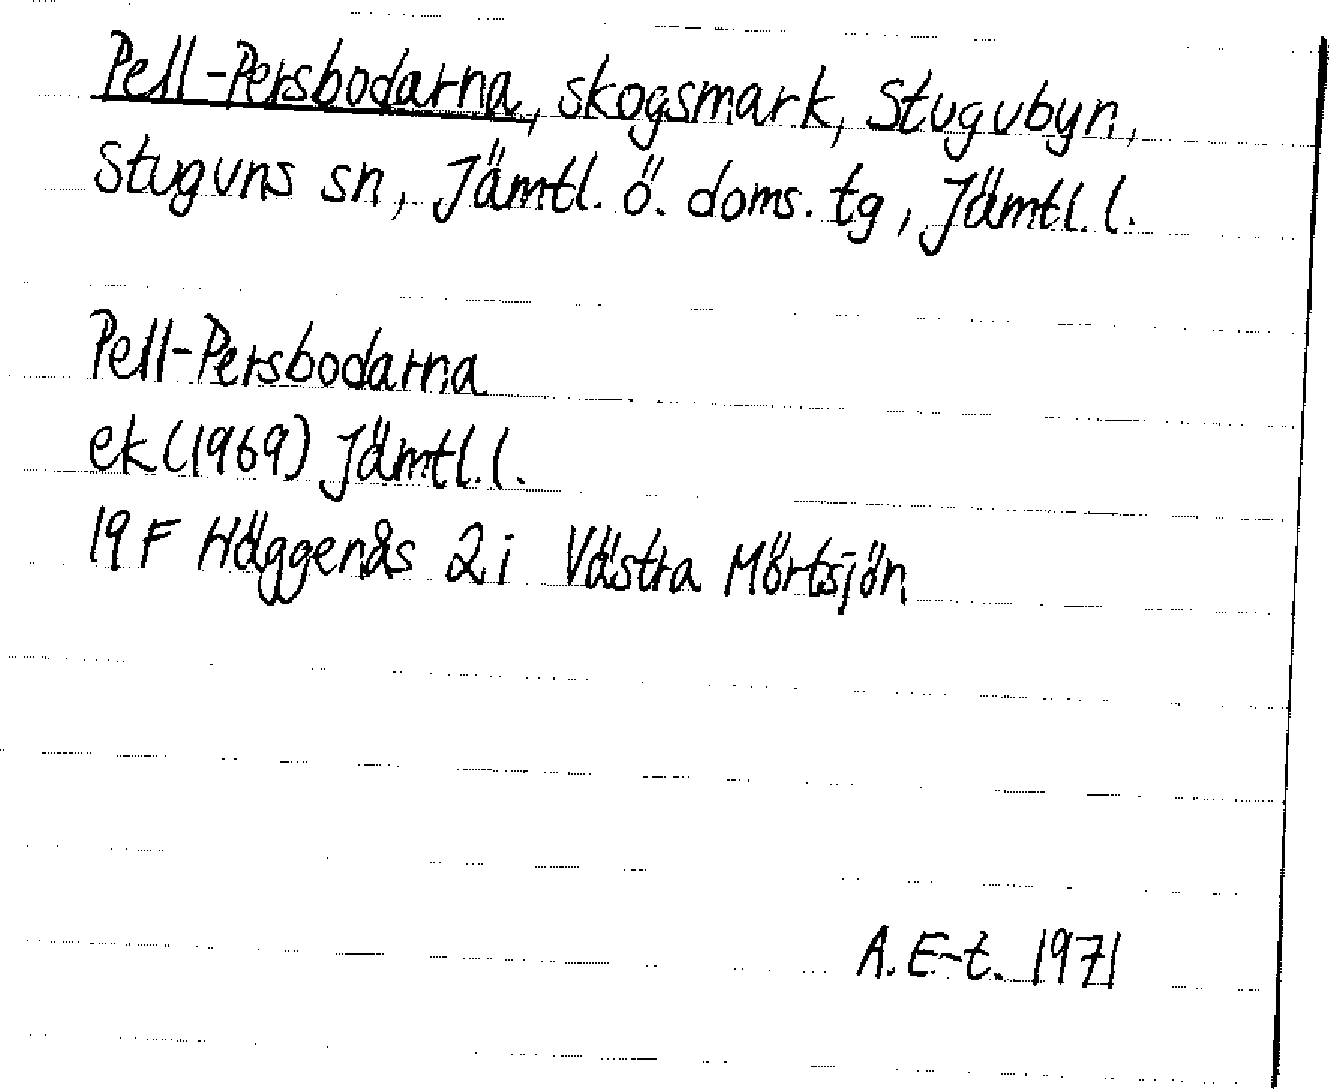 Pell-Persbodarna, skogsmark, Stugubyn,
Stuguns sn, Jämtl. ö. doms. tg, Jämtl. l.
Pell-Persbodarna
ek (1969) Jämtl. l.
19 F Häggenås 2 i Västra Mörtsjön
A. E-t. 1971